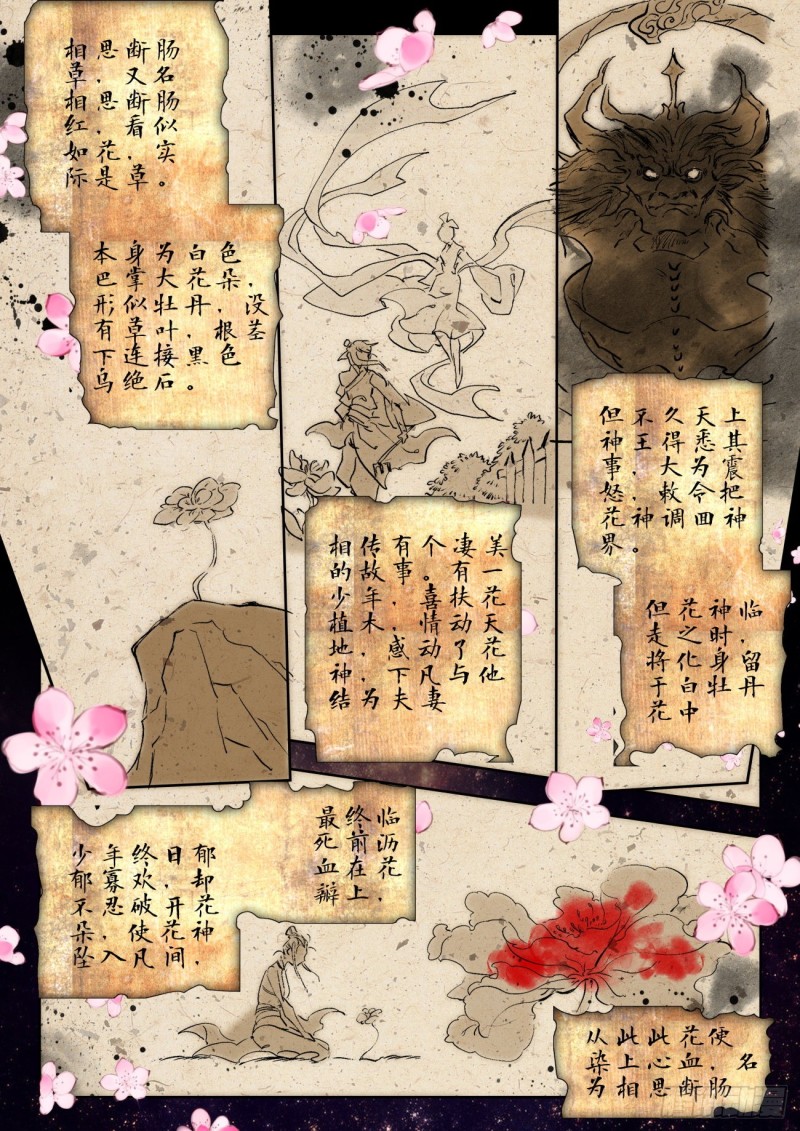 相思断肠
草，又名
相思断肠
红，看似
如花，实
际是草。
本身为白色
巴掌大花朵，
形似牡丹，没
有草叶，根茎
下连接黑色
乌绝石。
相传有个凄美
的故事。有一
少年，喜扶花
植木，情动天
地，感动了花
神，下凡与他
结为夫妻
但不久天上
神王得悉其
事，大为震
怒，敕令把
花神调回神
界。
但花神临
走之时，留
将化身牡丹
于白花中
少年终日郁
郁寡欢，却
不忍破开花
朵，使花神
坠入凡间，
最终临
死前沥
血在花
瓣上，
从此此花便
染上心血，名
为相思断肠